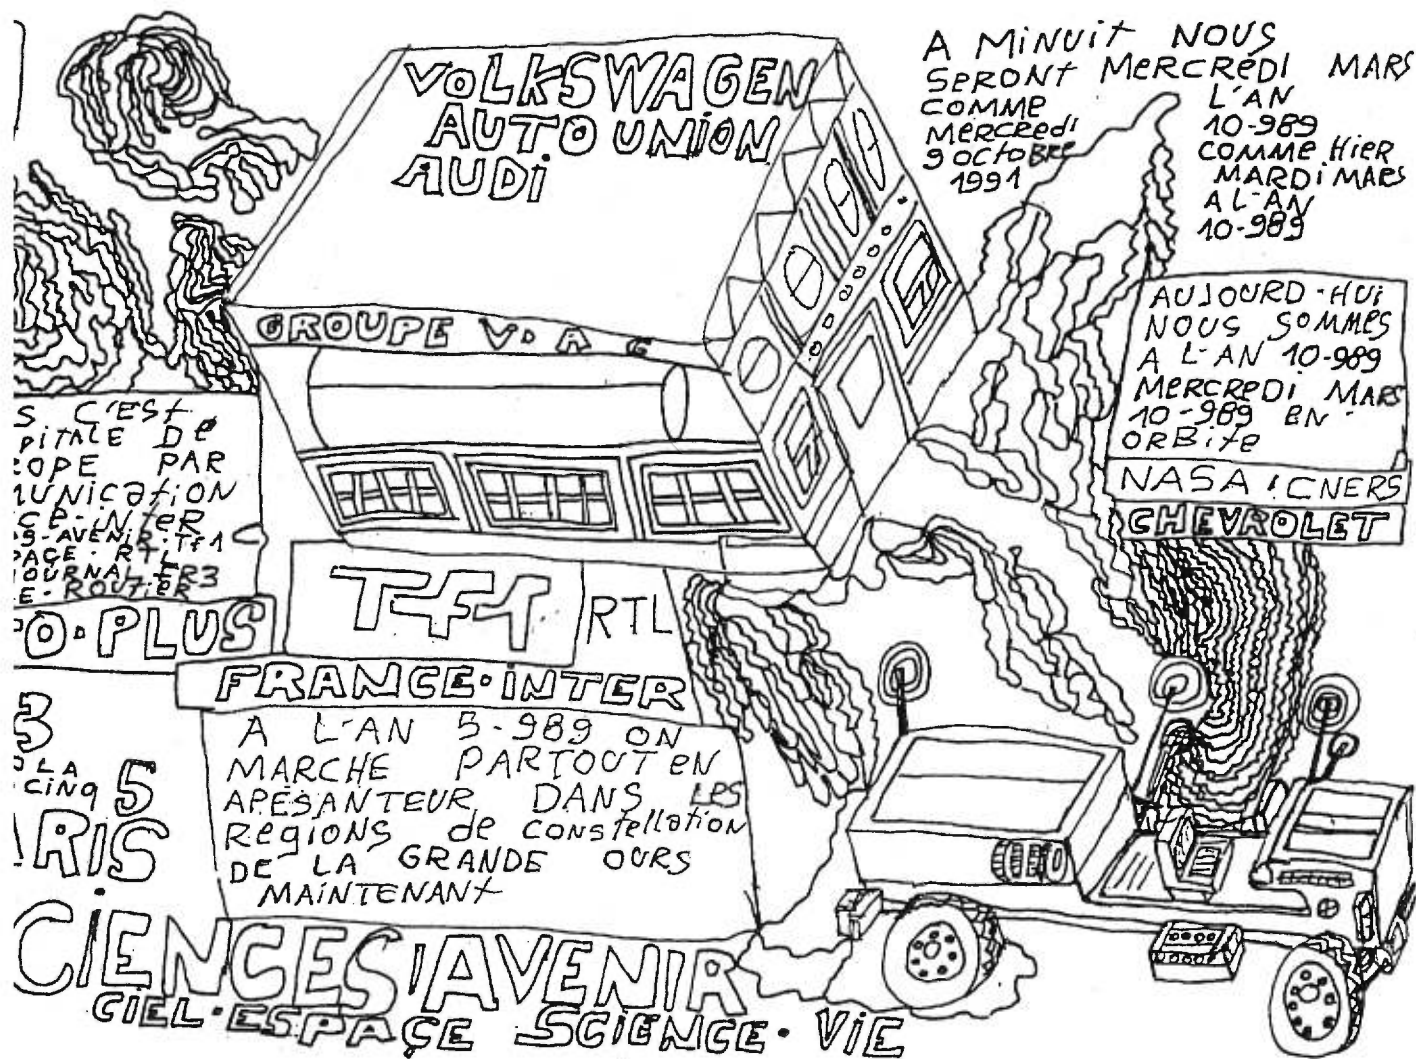 VOLKSWAGEN
AUTO UNION
AUDi
GROUPE V.A G
A MiNUiT NOUS
SERONt MERCREDI MARS
COMME
MERCREdi
9 OCtOBRE
1991
L'AN
10-989
COMME HiER
MARDi MARS
A L-AN
10-989
AUJOURD-HUi
NOUS SOMMES
A L-AN 10-989
MERCREDI MARS
10-989 EN
ORBitE
NASA.CNERS
CHEVROLET
S C'ESt
PiTALE DE
OPE PAR
UNICAtiON
CE-iNtER
S-AVENiR.Tf1
PACE.RTL
JOURNAL FR3
E.ROUTiER
O.PLUS
TF1
RTL
FRANCE.iNTER
A L-AN 5-989 ON
MARCHE PARTOUT EN
APESANTEUR DANS LES
REGiONS de CONStEllatiON
DE LA GRANDE OURS
MAiNTENANt
3
LA
CINQ 5
ARiS
CiENCES AVENiR
CiEL.ESPAÇE SCiENCE.ViE